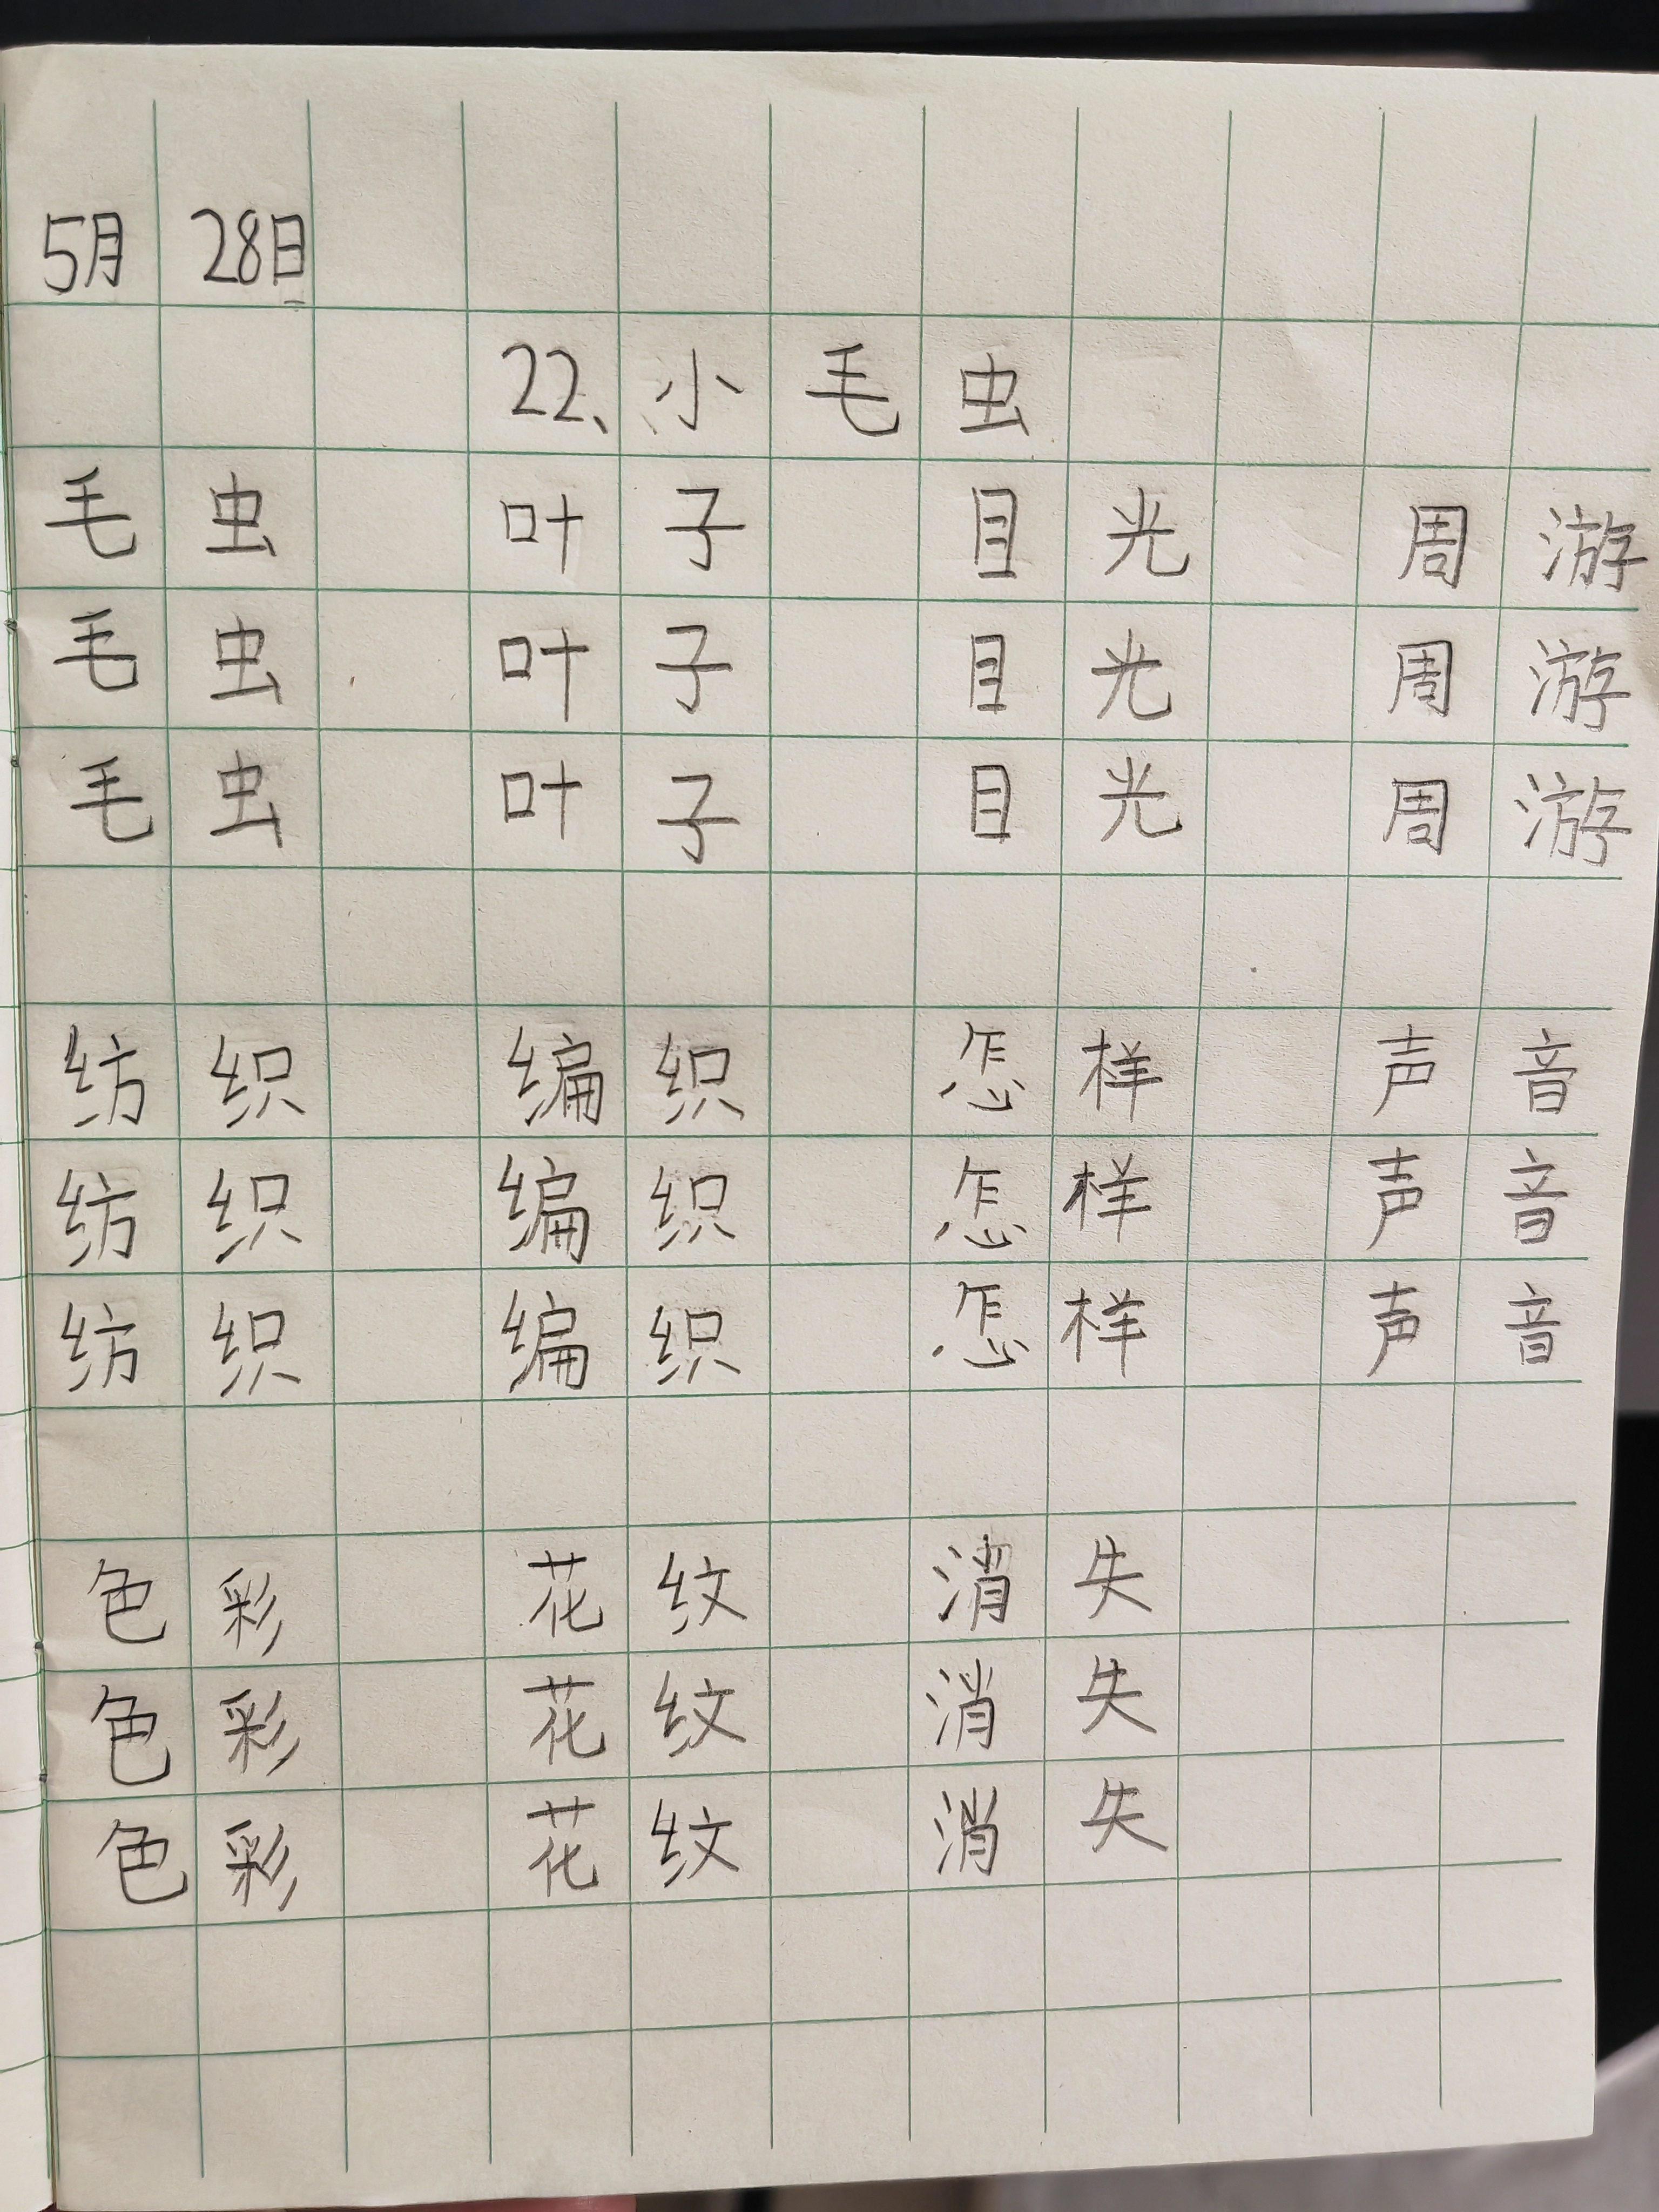 5月 28日
22、小毛虫
毛虫 叶子 目光 周游
毛虫 叶子 目光 周游
毛虫 叶子 目光 周游
纺织 编织 怎样 声音
纺织 编织 怎样 声音
纺织 编织 怎样 声音
色彩 花纹 消失
色彩 花纹 消失
色彩 花纹 消失